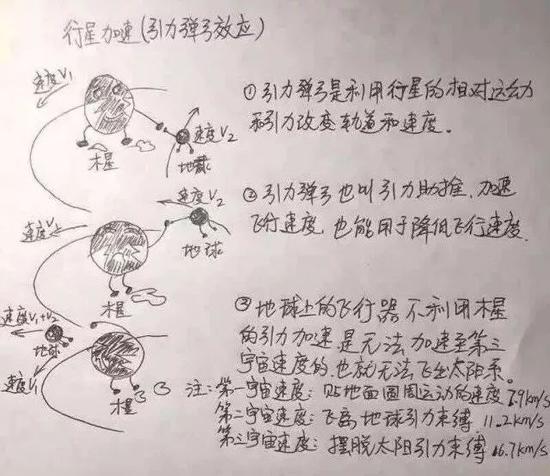 行星加速(引力弹弓效应)
速度V1
木星
速度V2
地球
①引力弹弓是利用行星的相对运动
和引力改变轨道和速度。
速度V2
速度V1
木星
地球
②引力弹弓也叫引力助推,加速
飞行速度,也能用于降低飞行速度.
速度V1+V2
地球
速度V1
木星
③地球上的飞行器不利用木星
的引力加速是无法加速至第三
宇宙速度的,也就无法飞出太阳系。
注:第一宇宙速度:贴地面圆周运动的速度7.9km/s
第二宇宙速度:飞离地球引力束缚 11.2km/s
第三宇宙速度:摆脱太阳引力束缚 16.7km/s